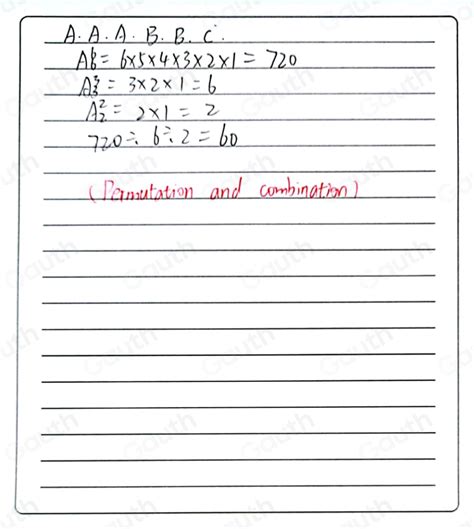 A. A. A. B. B. C.
A⁶₆ = 6×5×4×3×2×1 = 720
A³₃ = 3×2×1 = 6
A²₂ = 2×1 = 2
720÷6÷2 = 60
(Permutation and combination)